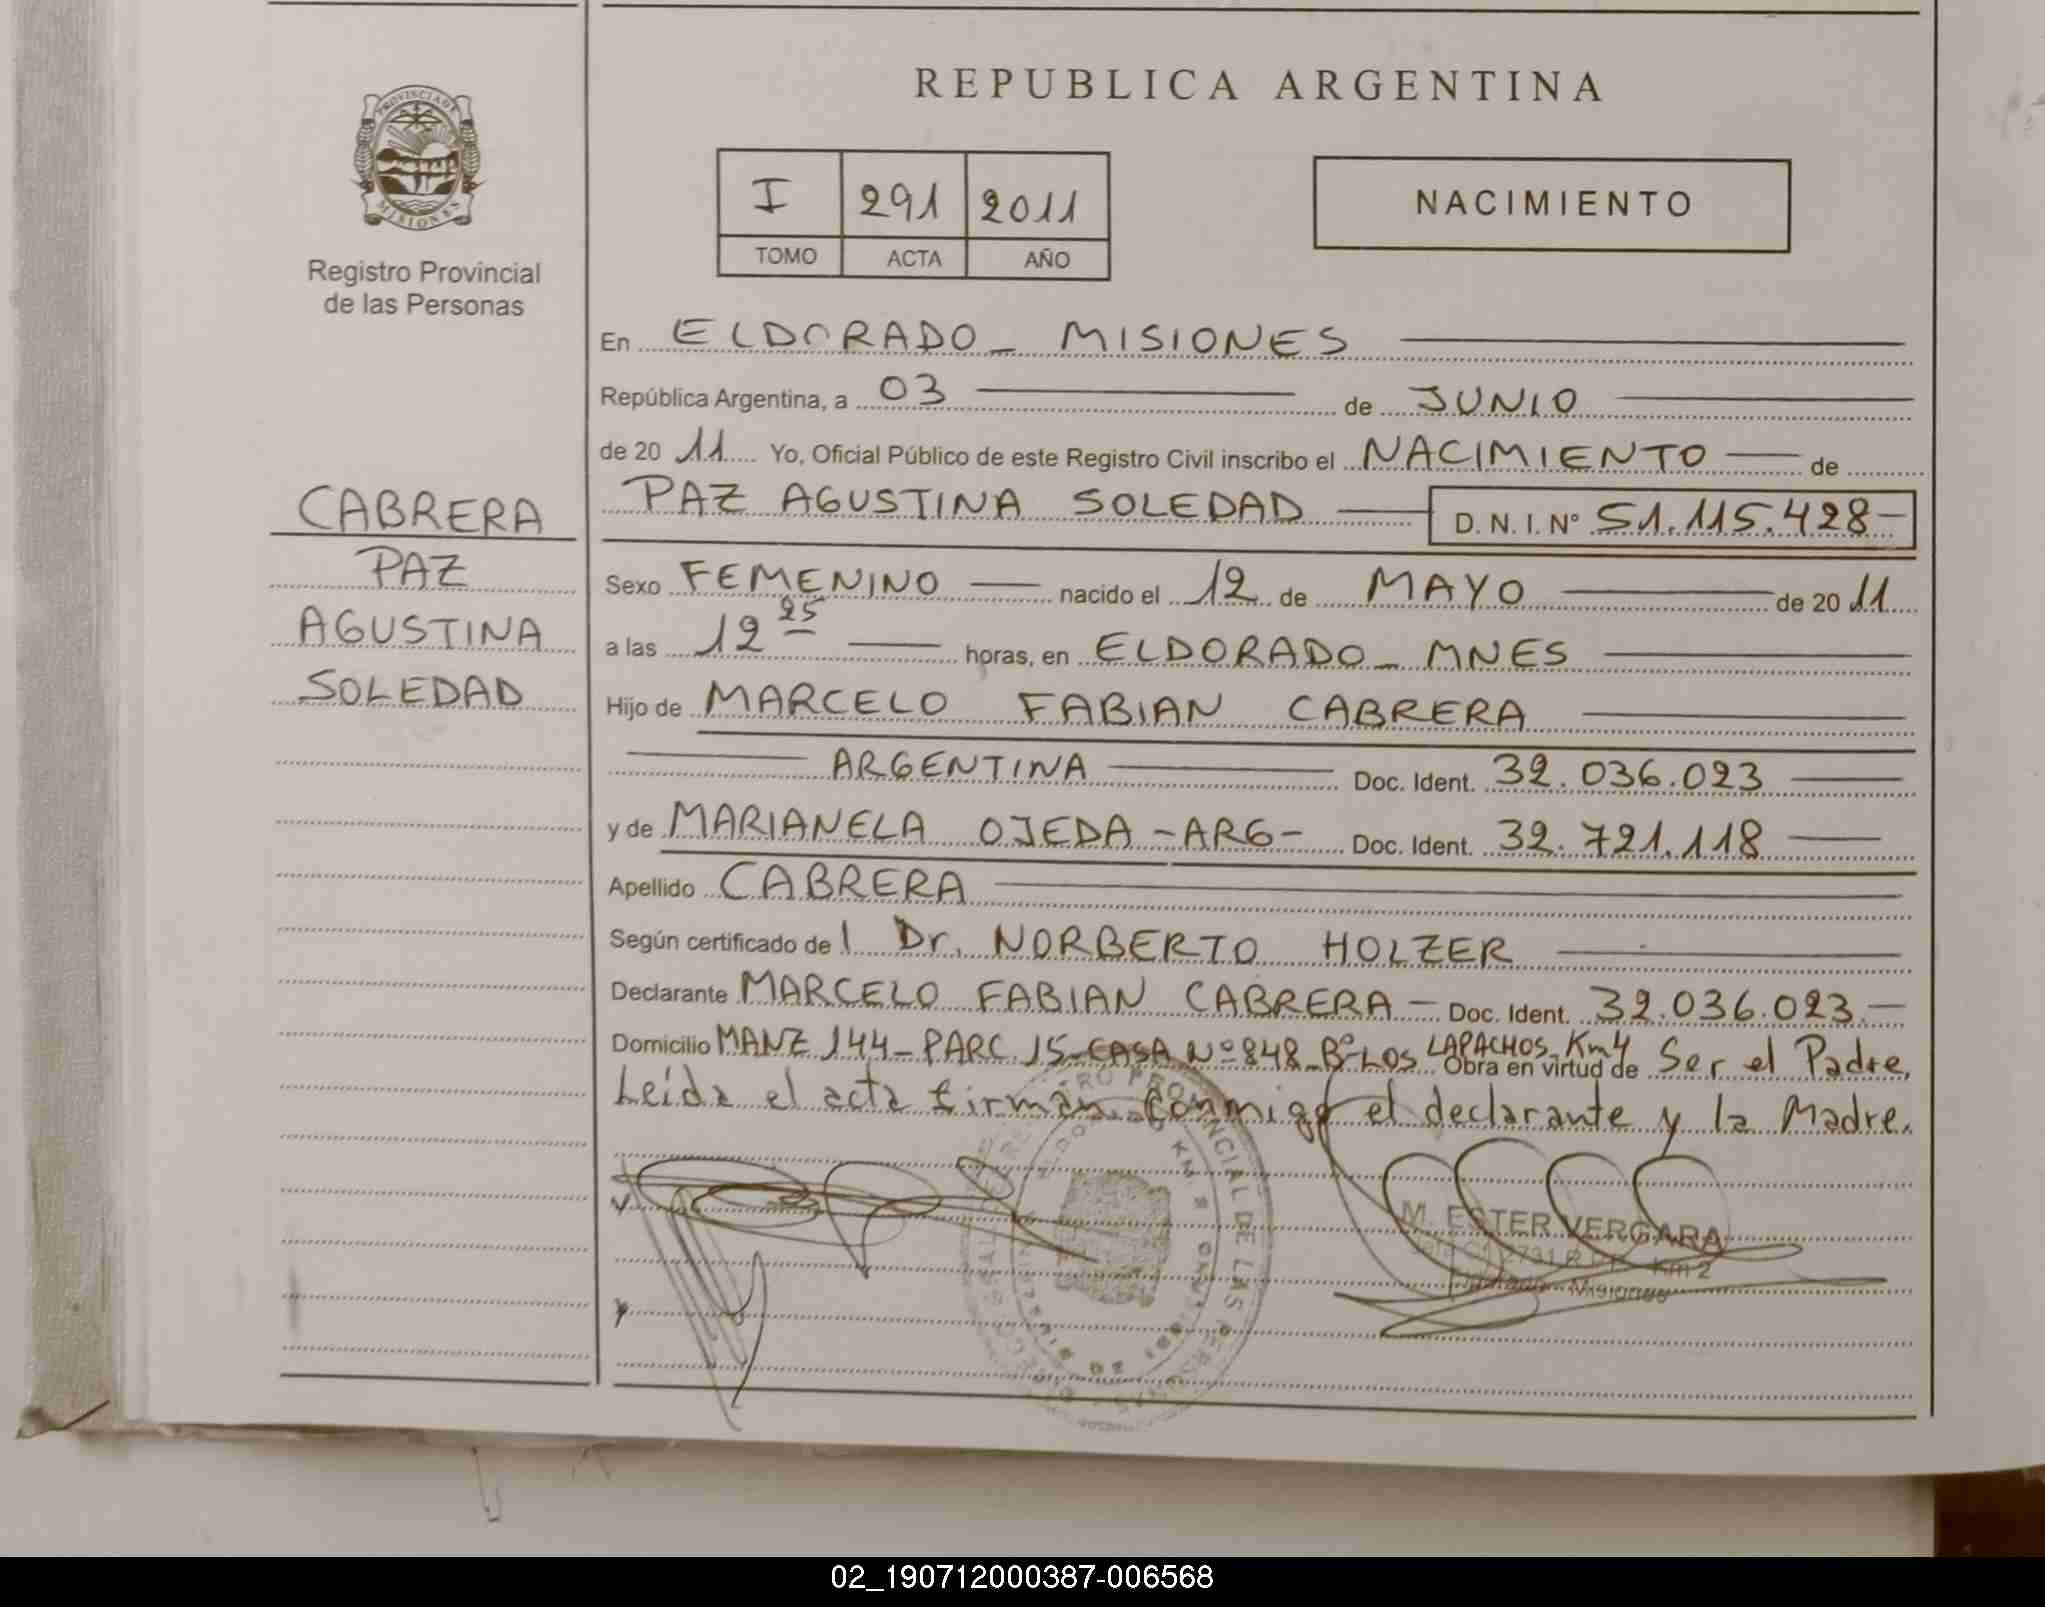 REPUBLICA ARGENTINA
PROVINCIA DE
MISIONES
Registro Provincial
de las Personas
I 291 2011
TOMO ACTA AÑO
NACIMIENTO
En ELDORADO_ MISIONES
República Argentina, a 03 de JUNIO
de 20 11 Yo, Oficial Público de este Registro Civil inscribo el NACIMIENTO de
PAZ AGUSTINA SOLEDAD D. N. I. Nº 51.115.428-
CABRERA
PAZ
AGUSTINA
SOLEDAD
Sexo FEMENINO nacido el 12 de MAYO de 20 11
a las 12 25 horas, en ELDORADO_ MNES
Hijo de MARCELO FABIAN CABRERA
ARGENTINA Doc. Ident. 32.036.023
y de MARIANELA OJEDA -ARG- Doc. Ident. 32.721.118
Apellido CABRERA
Según certificado de l Dr. NORBERTO HOLZER
Declarante MARCELO FABIAN CABRERA - Doc. Ident. 32.036.023.-
Domicilio MANZ 144_ PARC 15_CASA Nº 848_Bº LOS LAPACHOS_Km4 Obra en virtud de Ser el Padre.
Leída el acta firman conmigo el declarante y la Madre.
M. ESTER VERGARA
Km 2
Misiones
02_190712000387-006568